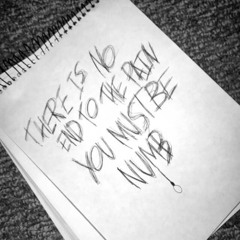 THERE IS NO
END TO THE PAIN
YOU MUST BE
NUMB